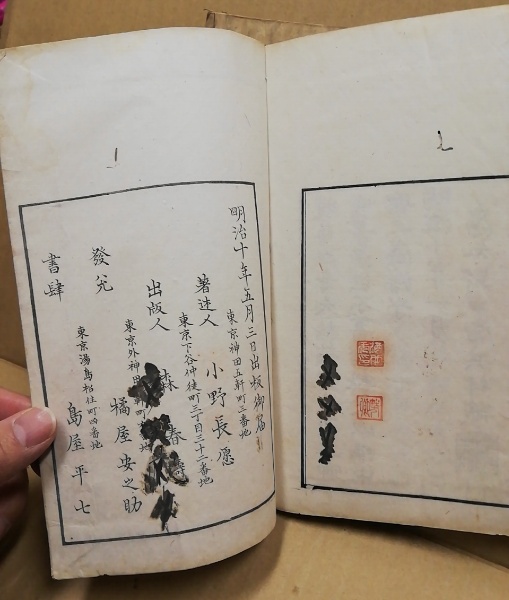 明治十年五月三日出板御届
東京神田五軒町二番地
著述人 小野長愿
東京下谷仲徒町三丁目三十二番地
出版人 森春濤
東京外神田
發兌 橘屋安之助
東京湯島松住町四番地
書肆 島屋平七